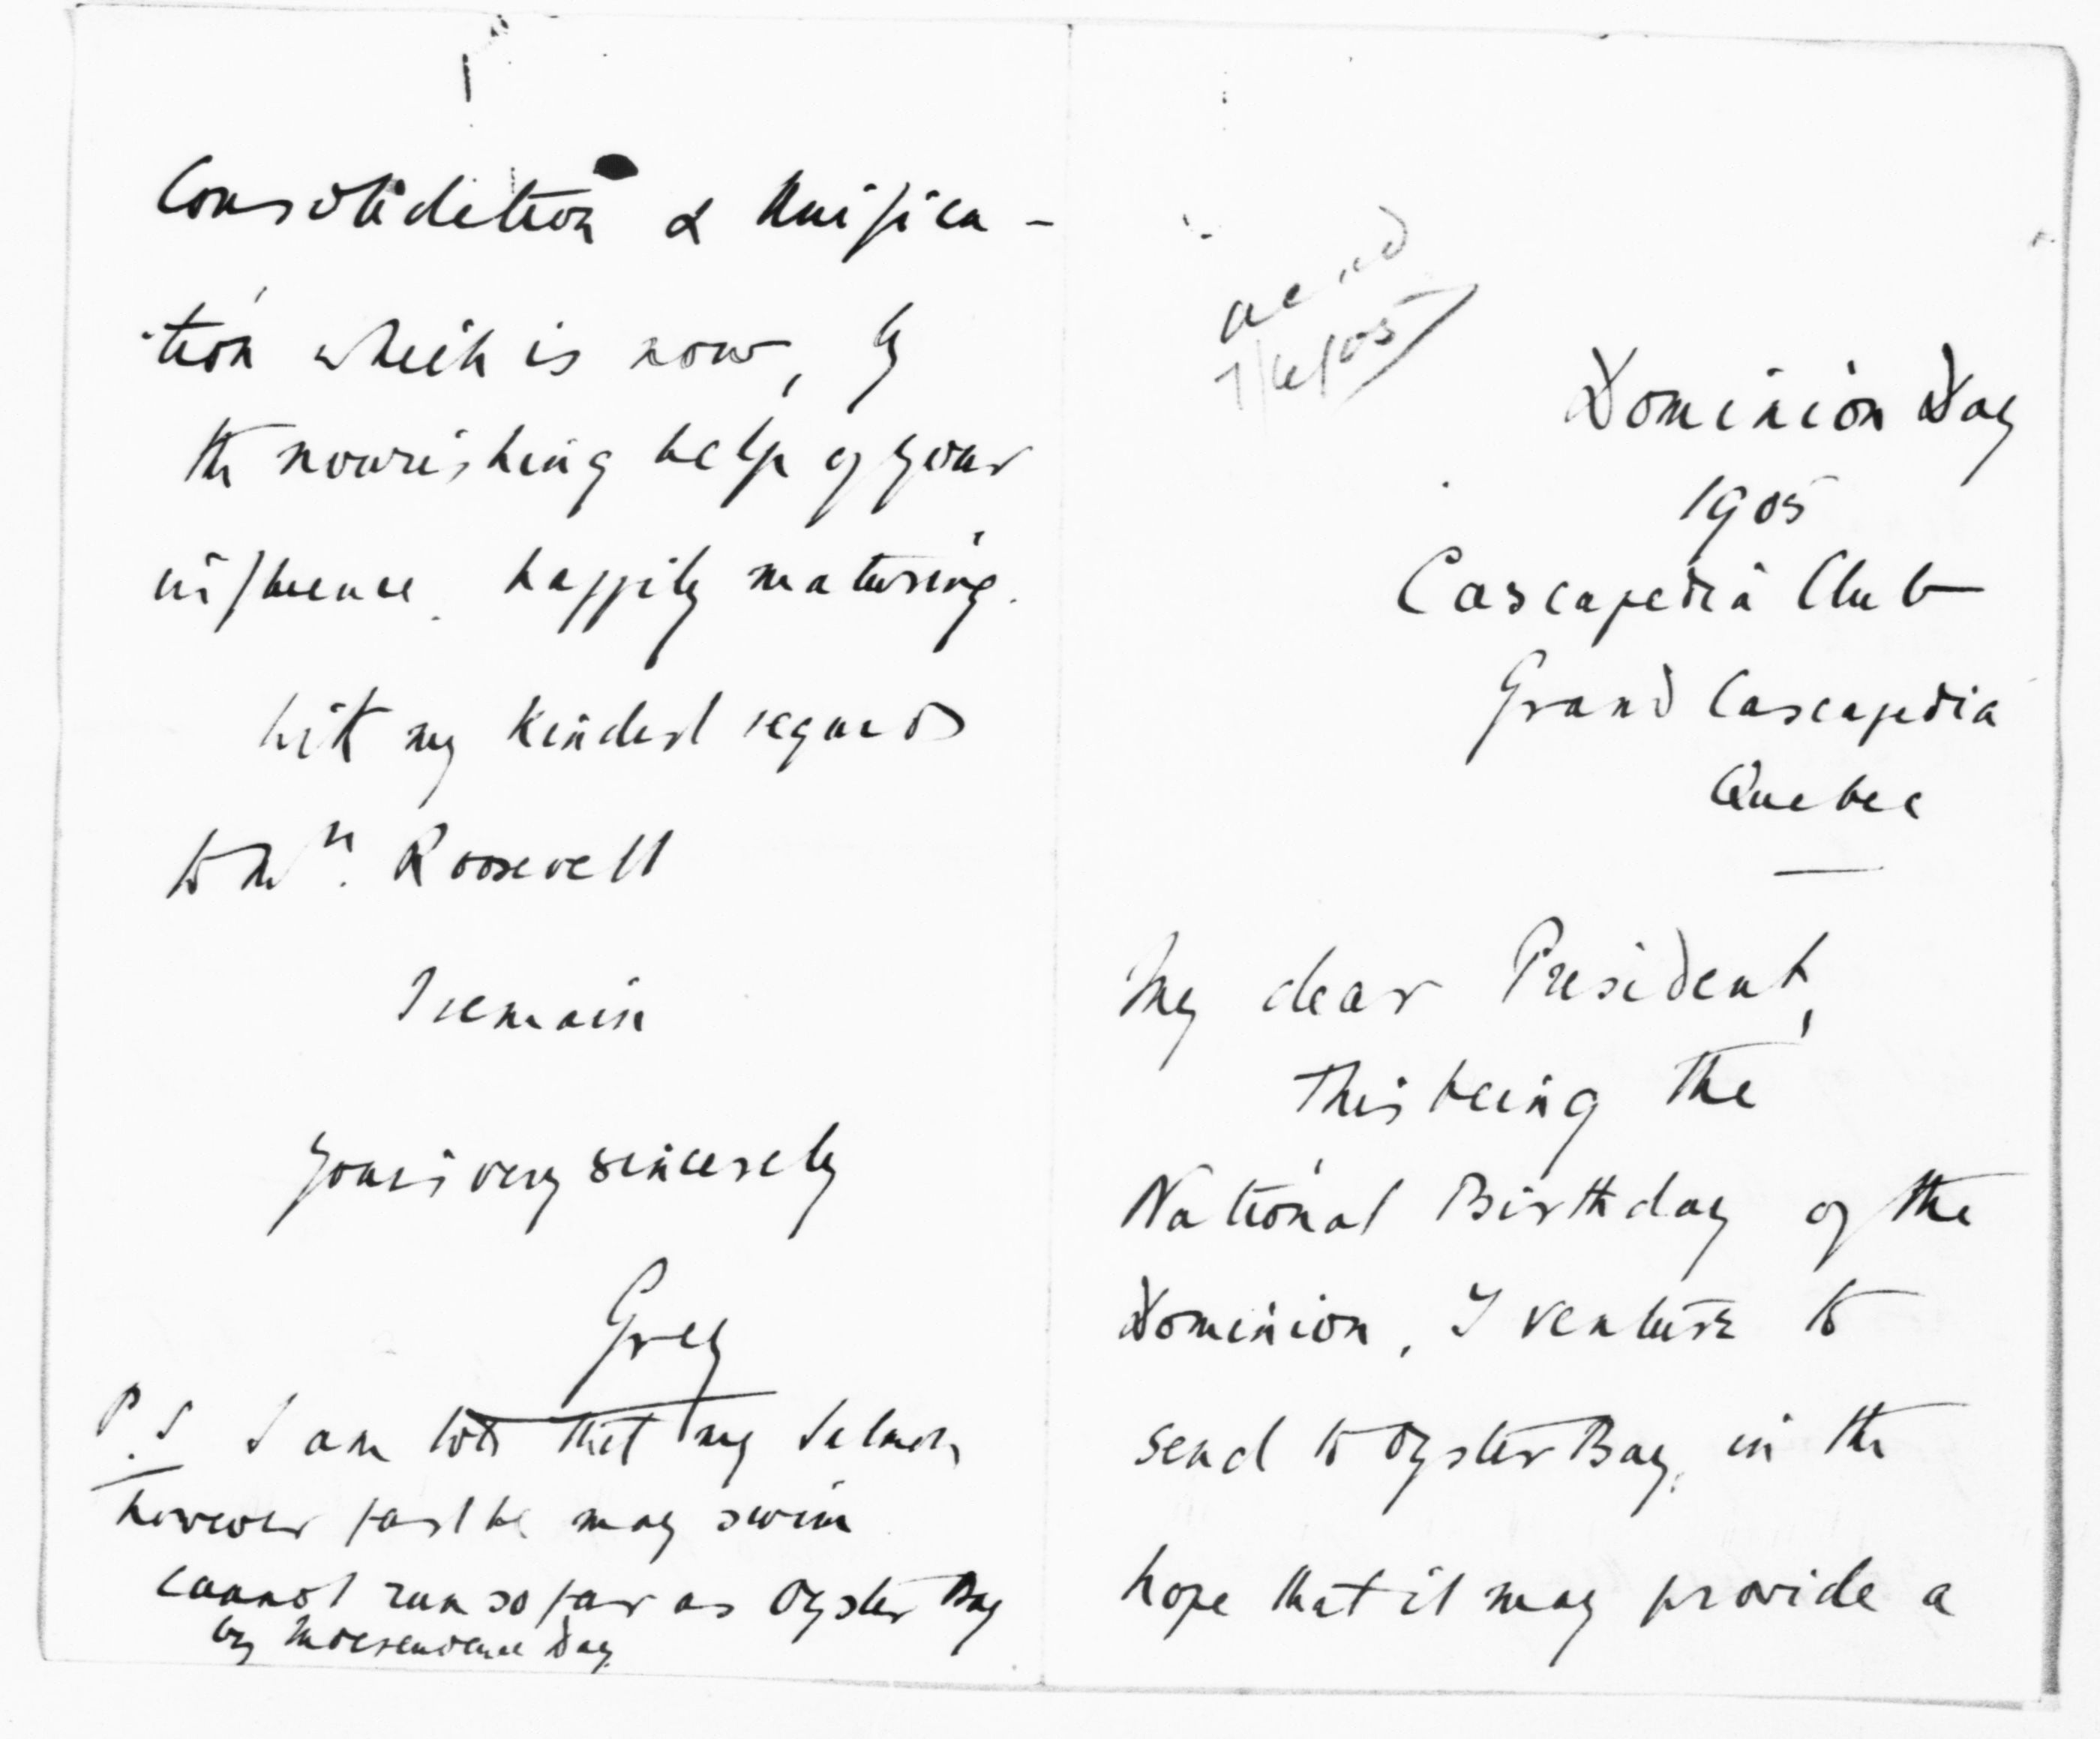 ack'd
7/6/05
Dominion Day
1905
Cascapedia Club
Grand Cascapedia
Quebec
My dear President,
This being the
National Birthday of the
Dominion, I venture to
send to Oyster Bay, in the
hope that it may provide a
Consolidation & Unifica-
-tion which is now, by
the nourishing help of your
influence, happily maturing.
With my kindest regards
to Mrs. Roosevelt
I remain
Yours very sincerely
Grey
P.S. I am told that my Salmon
however fast he may swim
cannot run so far as Oyster Bay
by Independence Day